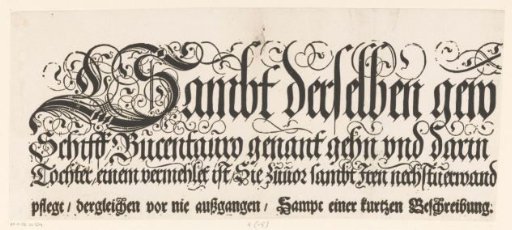 Sambt derselben gew
Schiff Bucentauro genant gehn vnd darin
Tochter einem vermehlet ist Sie zuuor sambt Iren nechstuerwand
pflegt / dergleichen vor nie außgangen / Sampt einer kurtzen Beschreibung.